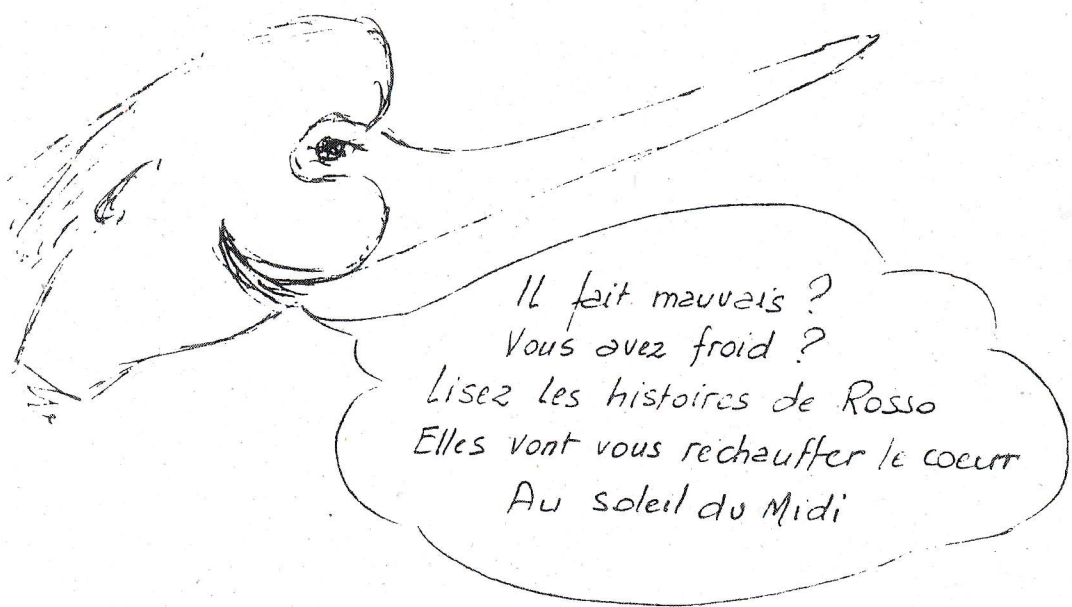 Il fait mauvais ?
Vous avez froid ?
Lisez les histoires de Rosso
Elles vont vous réchauffer le coeur
Au soleil du Midi